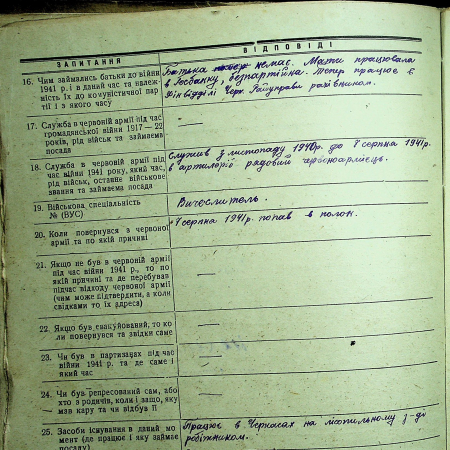 ЗАПИТАННЯ
ВІДПОВІДІ
16. Чим займались батьки до війни
1941 р. і в даний час та належ-
ність їх до комуністичної пар-
тії і з якого часу
Батька немає. Мати працювала
в Госбанку, безпартійна. Тепер працює в
Фінвідділі Черк. Райуправи рахівником.
17. Служба в червоній армії під час
громадянської війни 1917—22
років, рід військ та займаєма
посада
—
18. Служба в червоній армії під
час війни 1941 року, який час,
рід військ, останнє військове
звання та займаєма посада
Служив з листопаду 1940р. до 7 серпня 1941р.
в артилерії рядовий червоноармієць.
19. Військова спеціальність
№ (ВУС)
Вичеслитель.
20. Коли повернувся з червоної
армії та по якій причині
7 серпня 1941р. попав в полон.
21. Якщо не був в червоній армії
під час війни 1941 р., то по
якій причині та де перебував
підчас відходу червоної армії
(чим може підтвердити, а коли
свідками то їх адреса)
—
22. Якщо був евакуйований, то ко-
ли повернувся та звідки саме
—
23. Чи був в партизанах під час
війни 1941 р. та де саме і
який час
—
24. Чи був репресований сам, або
хто з родичів, коли і защо, яку
мав кару та чи відбув її
—
25. Засоби існування в даний мо-
мент (де працює і яку займає
посаду)
Працює в Черкасах на лісопильному з-ді
робітником.